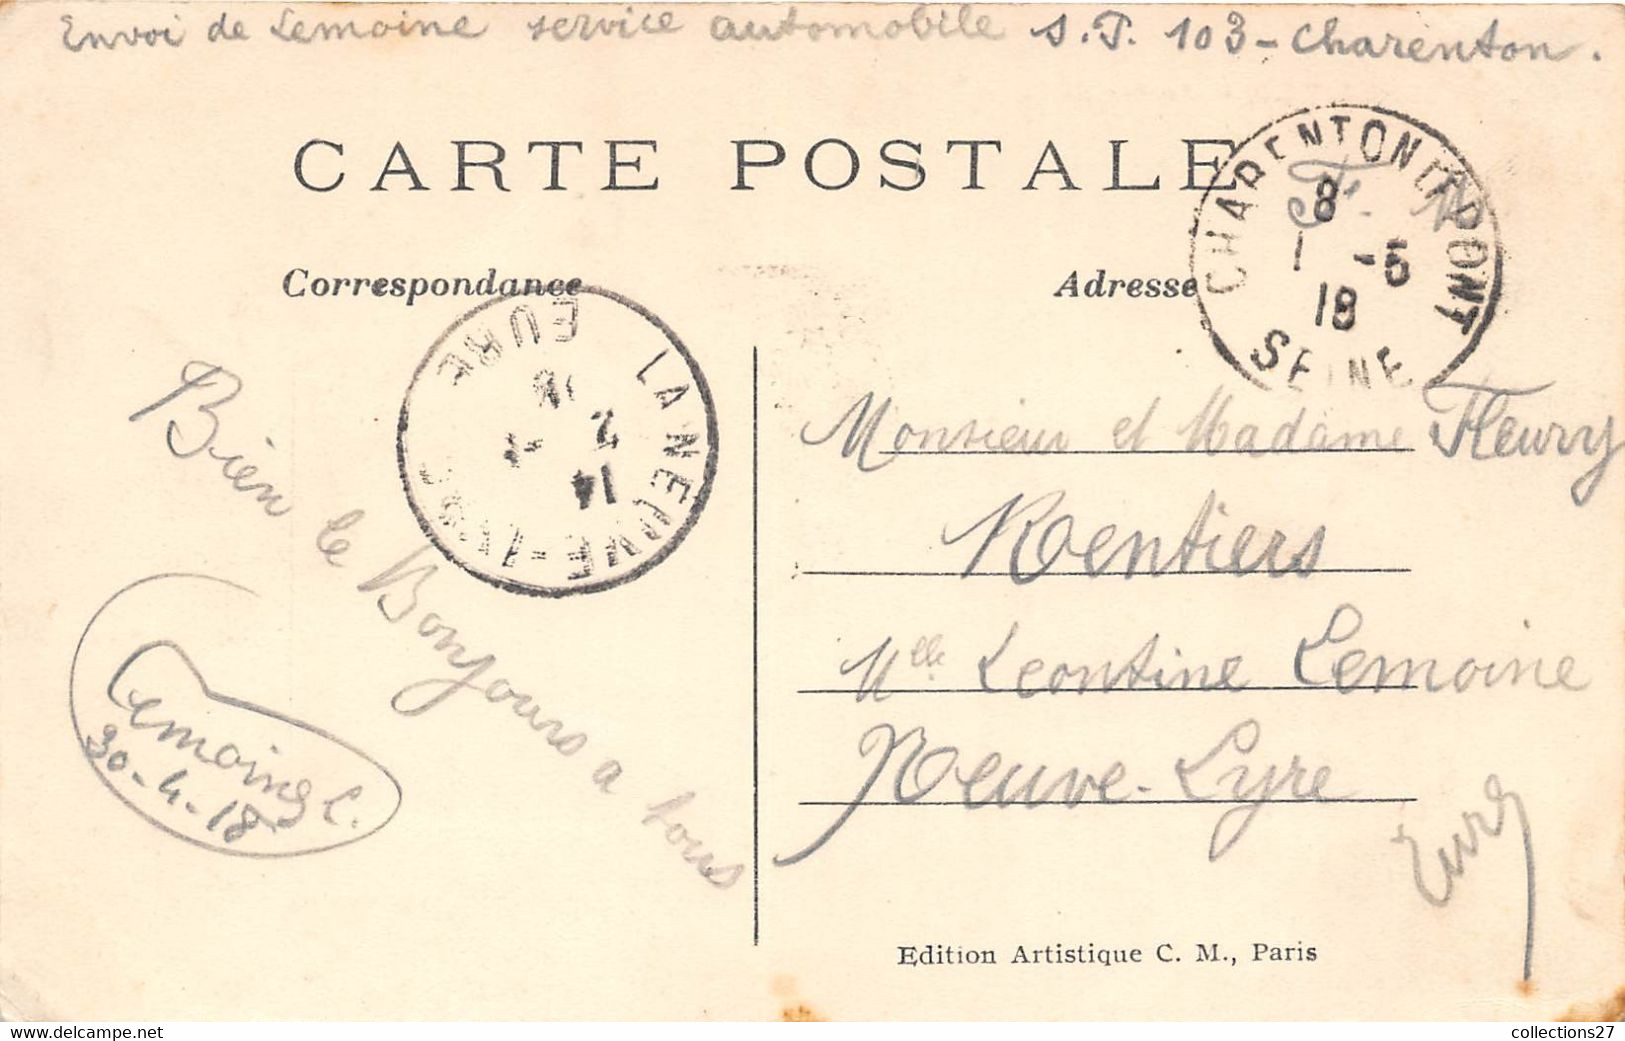 Envoi de Lemoine service automobile S.P. 103 - Charenton.
CARTE POSTALE
CHARENTON LE PONT
F. M
8
1 -5
18
SEINE
Correspondance
Adresse
LA NEUVE-LYRE
EURE
14
2 - 5
18
Bien le Bonjours a tous
Lemoine L.
30-4-18
Monsieur et Madame Fleury
Rentiers
Mlle Leontine Lemoine
Neuve-Lyre
Eure
Edition Artistique C. M., Paris
collections27